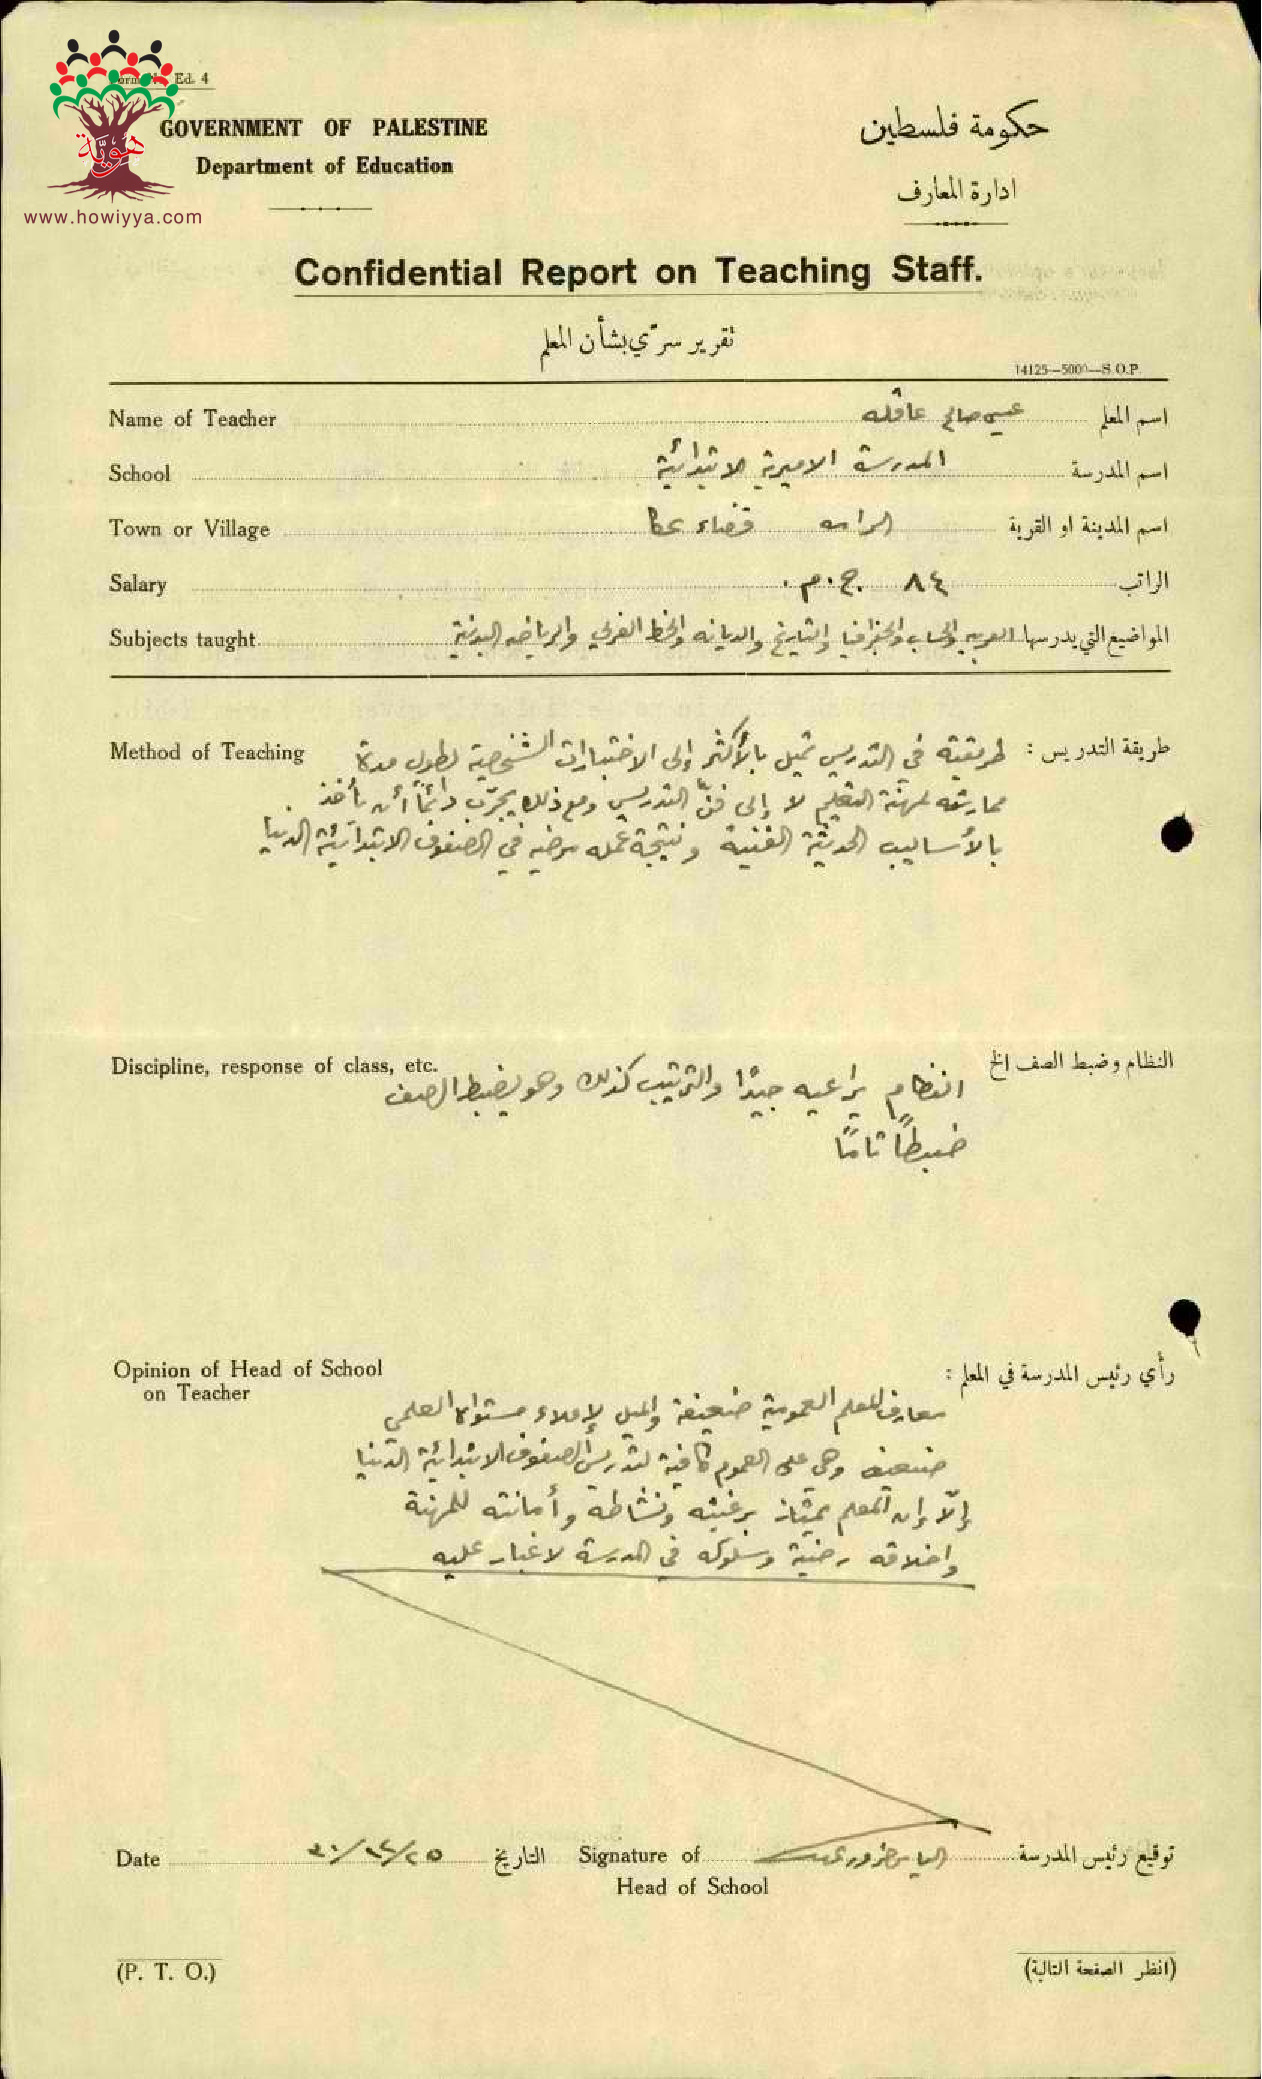 Ed. 4
هوية
www.howiyya.com
GOVERNMENT OF PALESTINE
Department of Education
حكومة فلسطين
ادارة المعارف
Confidential Report on Teaching Staff.
تقرير سرّي بشأن المعلم
14125—5000—S.O.P.
Name of Teacher عيسى صالح عاقله اسم المعلم
School المدرسة الاميرية الابتدائية اسم المدرسة
Town or Village الرامه قضاء عكا اسم المدينة او القرية
Salary ٨٤ ج.م. الراتب
Subjects taught العربيه والحساب والجغرافيا والتاريخ والديانه والخط العربي والرياضه البدنية المواضيع التي يدرسها
Method of Teaching طريقة التدريس :
طريقته في التدريس تميل بالأكثر إلى الاختبارات الشخصية لطول مدة
ممارسته لمهنة التعليم لا إلى فنّ التدريس ومع ذلك يجرّب دائماً أن يأخذ
بالأساليب الحديثة الفنية ونتيجة عمله مرضيه في الصفوف الابتدائية الدنيا
Discipline, response of class, etc. النظام وضبط الصف الخ
النظام يراعيه جيدًا والترتيب كذلك وهو يضبط الصف
ضبطًا تامًا
Opinion of Head of School
on Teacher
رأي رئيس المدرسة في المعلم :
معارف المعلم العمومية ضعيفة والميل لإعلاء مستواه العلمي
ضعيف وهي على العموم كافية لتدريس الصفوف الابتدائية الدنيا
إلّا إن المعلم يمتاز برغبته ونشاطه وأمانته للمهنة
واخلاقه رضية وسلوكه في المدرسة لا غبار عليه
Date ٣٠/١٢/٢٥ التاريخ Signature of توقيع رئيس المدرسة
Head of School
(P. T. O.) (انظر الصفحة التالية)